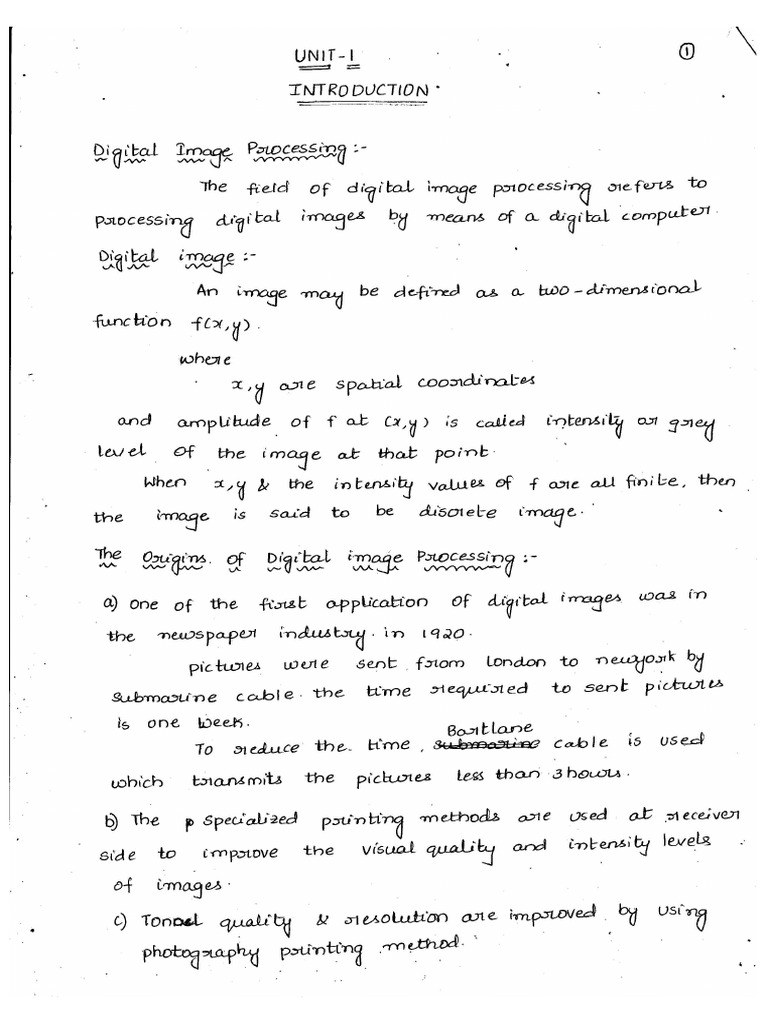 UNIT-1
①
INTRODUCTION
Digital Image Processing :-
The field of digital image processing refers to
processing digital images by means of a digital computer.
Digital image :-
An image may be defined as a two-dimensional
function f(x,y).
where
x,y are spatial coordinates
and amplitude of f at (x,y) is called intensity or grey
level of the image at that point.
When x,y & the intensity values of f are all finite, then
the image is said to be discrete image.
The Origins of Digital image Processing :-
a) one of the first application of digital images was in
the newspaper industry. in 1920.
pictures were sent from london to newyork by
submarine cable. the time required to sent pictures
is one week.
Bartlane
To reduce the time, submarine cable is used
which transmits the pictures less than 3 hours.
b) The p specialized printing methods are used at receiver
side to improve the visual quality and intensity levels
of images.
c) quality & resolution are improved by using
photography printing method.